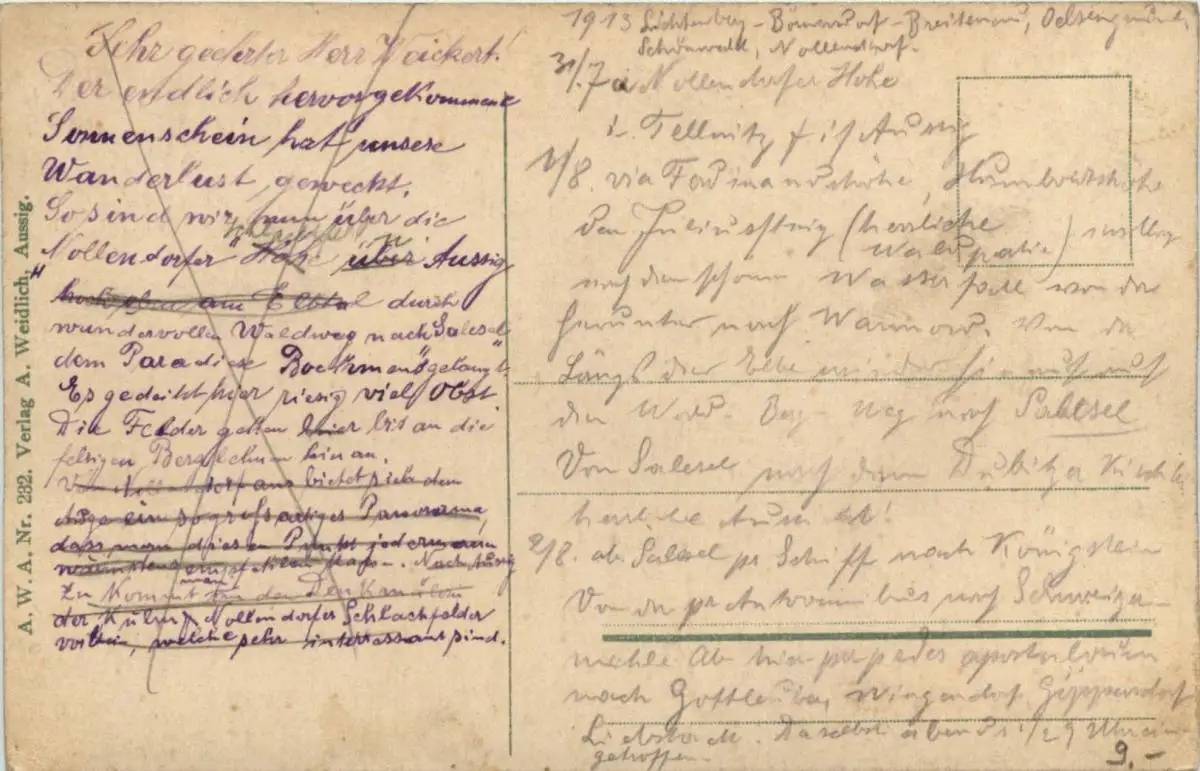 A. W. A. Nr. 232. Verlag A. Weidlich, Aussig.
Sehr geehrter Herr Weickert!
Der endlich hervorgekommene
Sonnenschein hat unsere
Wanderlust geweckt.
So sind wir nun über die
Nollendorfer Aussig
durch
wundervollen Waldweg nach "Salesel
dem Paradiese Boehmens" gelangt.
Es gedeiht hier riesig viel Obst
Die Felder gehen hier bis an die
felsigen Berglehnen hinan.
Von Nollendorf aus bietet sich dem
Auge ein so großartiges Panorama,
dass man diesen Punkt jedermann
wärmstens empfehlen kann. Nach Aussig
zu kommt man an den Denkmälern
der Kulm & Nollendorfer Schlachtfelder
vorbei, welche sehr interressant sind.
1913 Lichtenberg - Breitenau, Oelsengrund
Schönwald, Nollendorf.
31/.7 Nollendorfer Höhe
Tellnitz Aussig
1/8. via Ferdinandshöhe, Humboldtshöhe
den (herrliche
) 
nach dem schönen Wasserfall von da
herunter nach Wannow. Von da
Längs der Elbe
den Wald- Berg- Weg nach Salesel
Von Salesel nach dem Dubitzer Kirchl
herrliche Aussicht!
2/8. ab Salesel pr Schiff nach Königstein
Von da pr Autoomnibus nach Schweizer-
mühle Ab hier per pedes apostolorum
nach Gottleuba, Wingendorf, Göppersdorf
Liebstadt. Daselbst abends 1/2 9 Uhr ein-
getroffen.
9.-